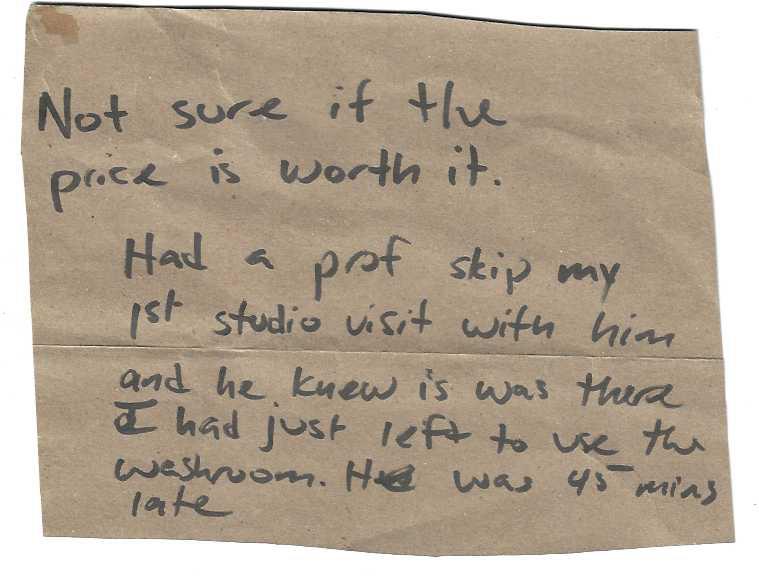 Not sure if the
price is worth it.
Had a prof skip my
1st studio visit with him
and he knew is was there
I had just left to use the
washroom. He was 45 mins
late